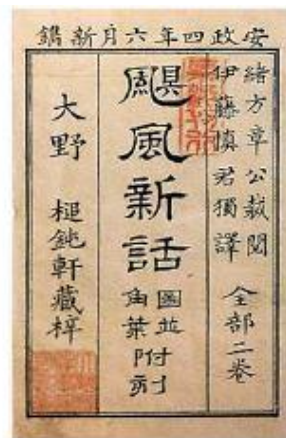 安政四年六月新鐫
緒方章 公裁閲
伊藤慎 君獨譯
全部二卷
颶風新話
圖並
角葉
附刻
大野 槌鈍軒藏梓